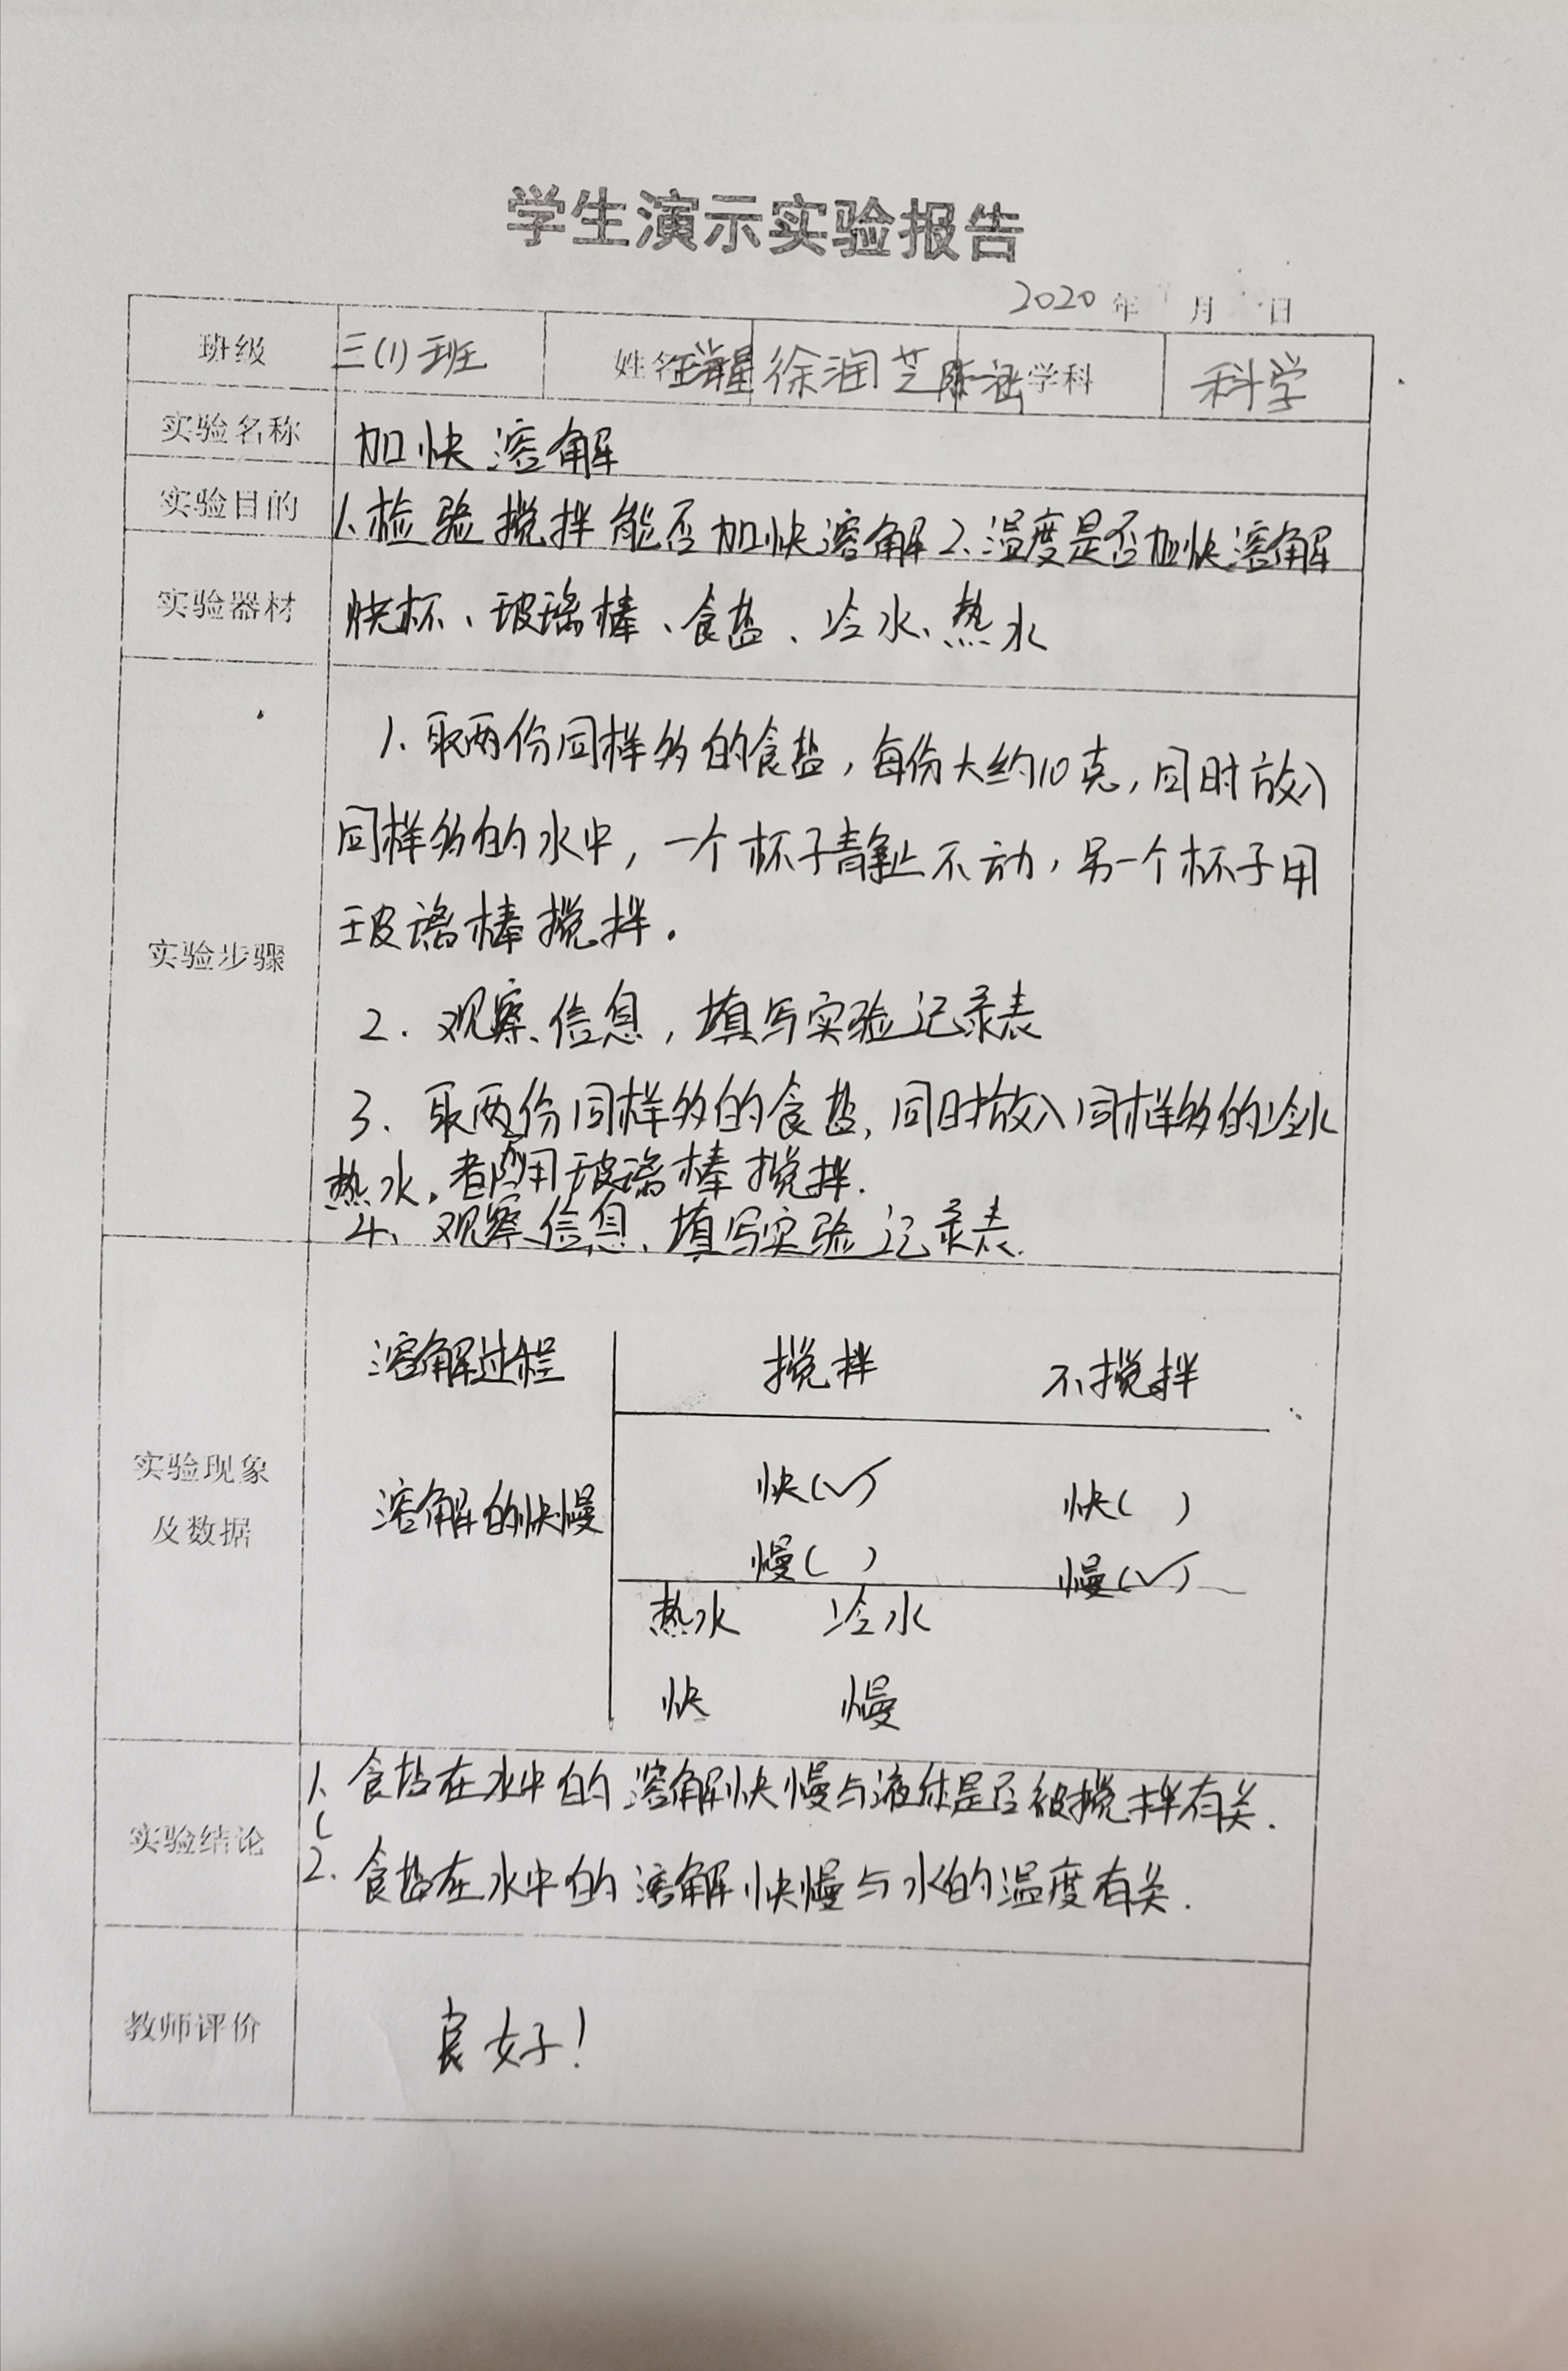 学生演示实验报告
2020年 月 日
班级 三(1)班 姓名 徐润芝 学科 科学
实验名称 加快溶解
实验目的 1、检验搅拌能否加快溶解2、温度是否加快溶解
实验器材 杯、玻璃棒、食盐、冷水、热水
1、取两份同样多的食盐,每份大约10克,同时放入
同样多的水中,一个杯子静止不动,另一个杯子用
玻璃棒搅拌.
实验步骤
2. 观察信息,填写实验记录表
3、取两份同样多的食盐,同时放入同样多的冷水
热水,都用玻璃棒搅拌.
4、观察信息、填写实验记录表.
溶解过程 搅拌 不搅拌
实验现象
及数据
溶解的快慢 快(✓) 快( )
慢( ) 慢(✓)
热水 冷水
快 慢
1、食盐在水中的溶解快慢与液体是否被搅拌有关.
实验结论
2.食盐在水中的溶解快慢与水的温度有关.
教师评价 良好!